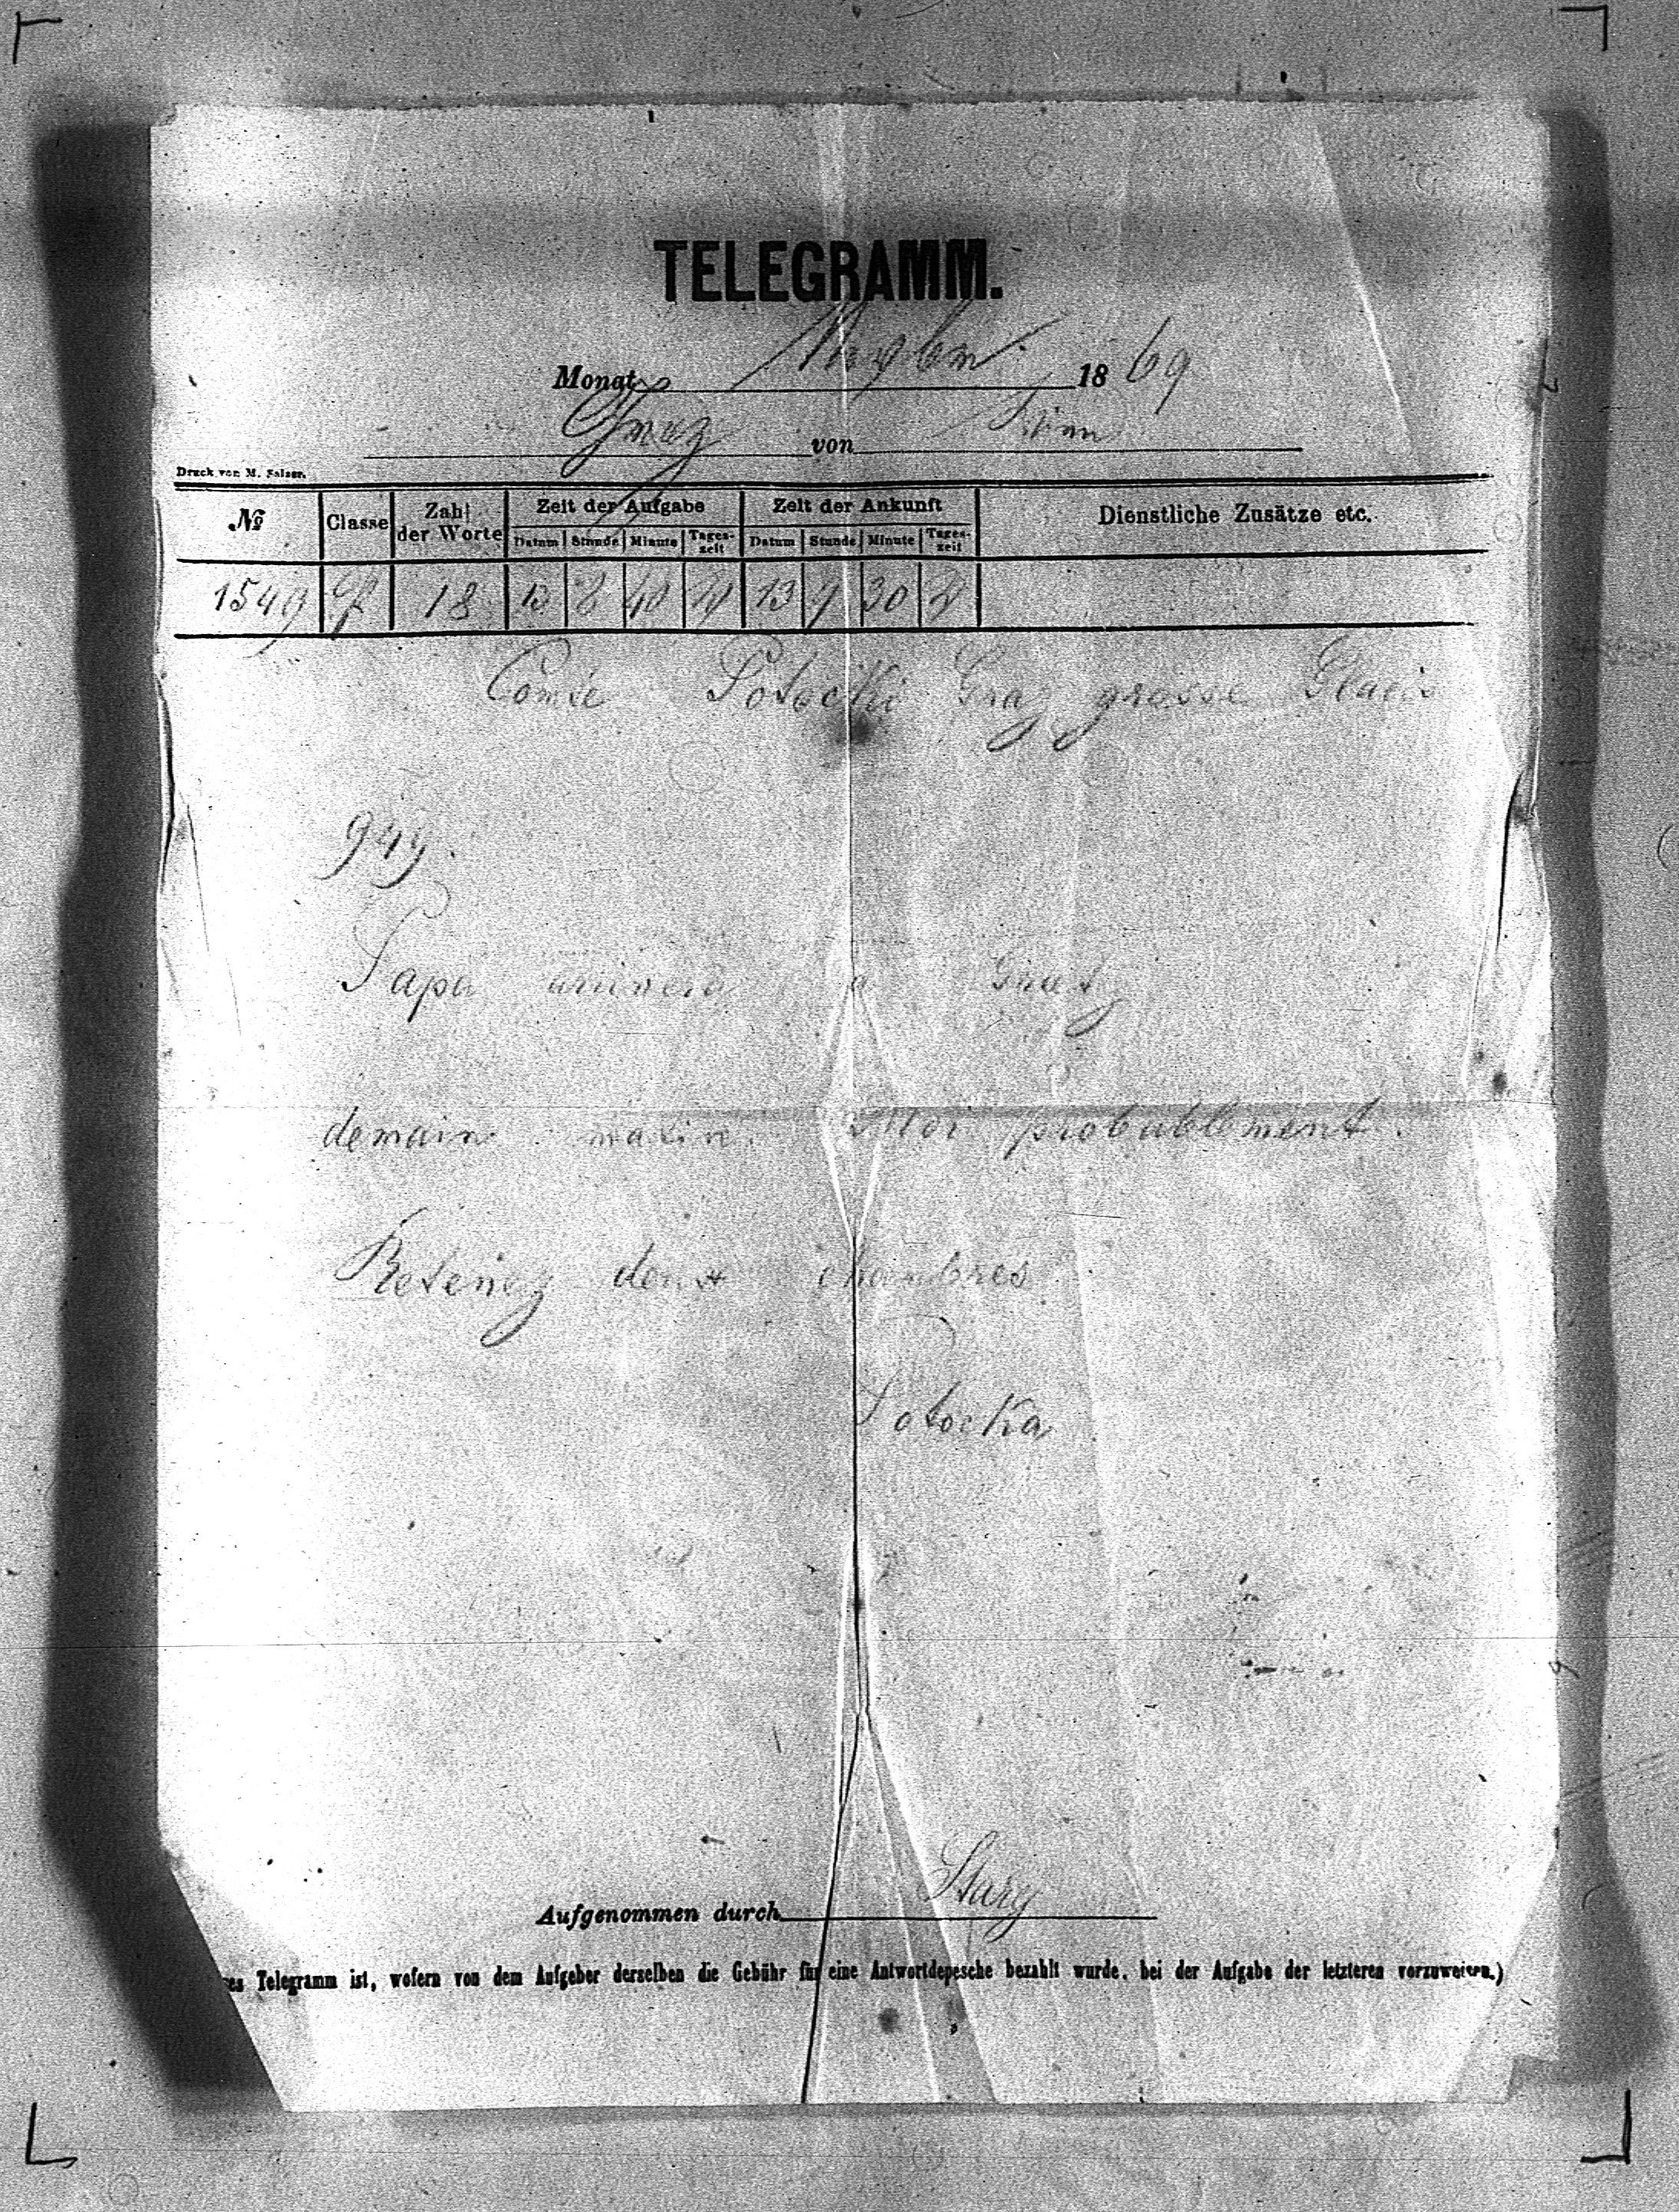 TELEGRAMM.
Monat 18 69
Graz von Wien
Druck von M. Salzer.
№ Classe Zahl der Worte Zeit der Aufgabe Zeit der Ankunft Dienstliche Zusätze etc.
Datum Stunde Minute Tages-zeit Datum Stunde Minute Tages-zeit
1549 18 13 8 40 13 9 30
Comte Potocki Graz grosse Glacis
949.
Papa arrivera a Gratz
demain matin. Moi probablement.
Retenez deux chambres
Potocka
Aufgenommen durch Stary
es Telegramm ist, wofern von dem Aufgeber derselben die Gebühr für eine Antwortdepesche bezahlt wurde, bei der Aufgabe der letzteren vorzuweisen.)